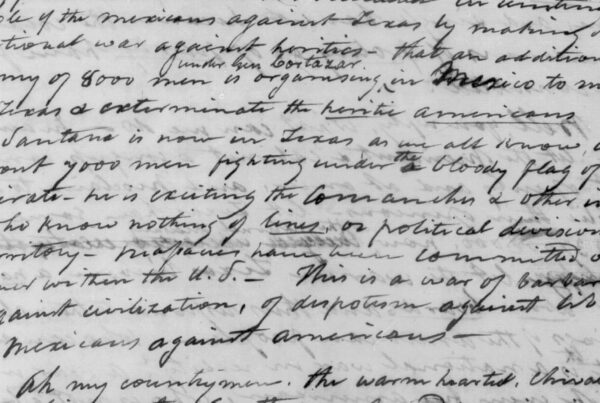 ple of the mexicans against Texas by making
tional war against heritics - that an addition
under Gen Cortazar
my of 8000 men is organising in Mexico to m
Texas & exterminate the heritic americans
Santana is now in Texas as we all know,
out 7000 men fighting under the bloody flag of
irate - he is exciting the Comanches & other in
ho know nothing of lines, or political division
rritory - massacres have been committed o
iver within the U.S. - This is a war of barbar
gainst civilization, of despotism against lib
mexicans against americans -
Ah my countrymen. the warm hearted, chival